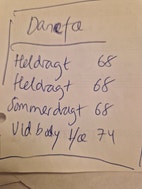 Danefæ
Heldragt 68
Heldragt 68
Sommerdragt 68
Vid body l/æ 74